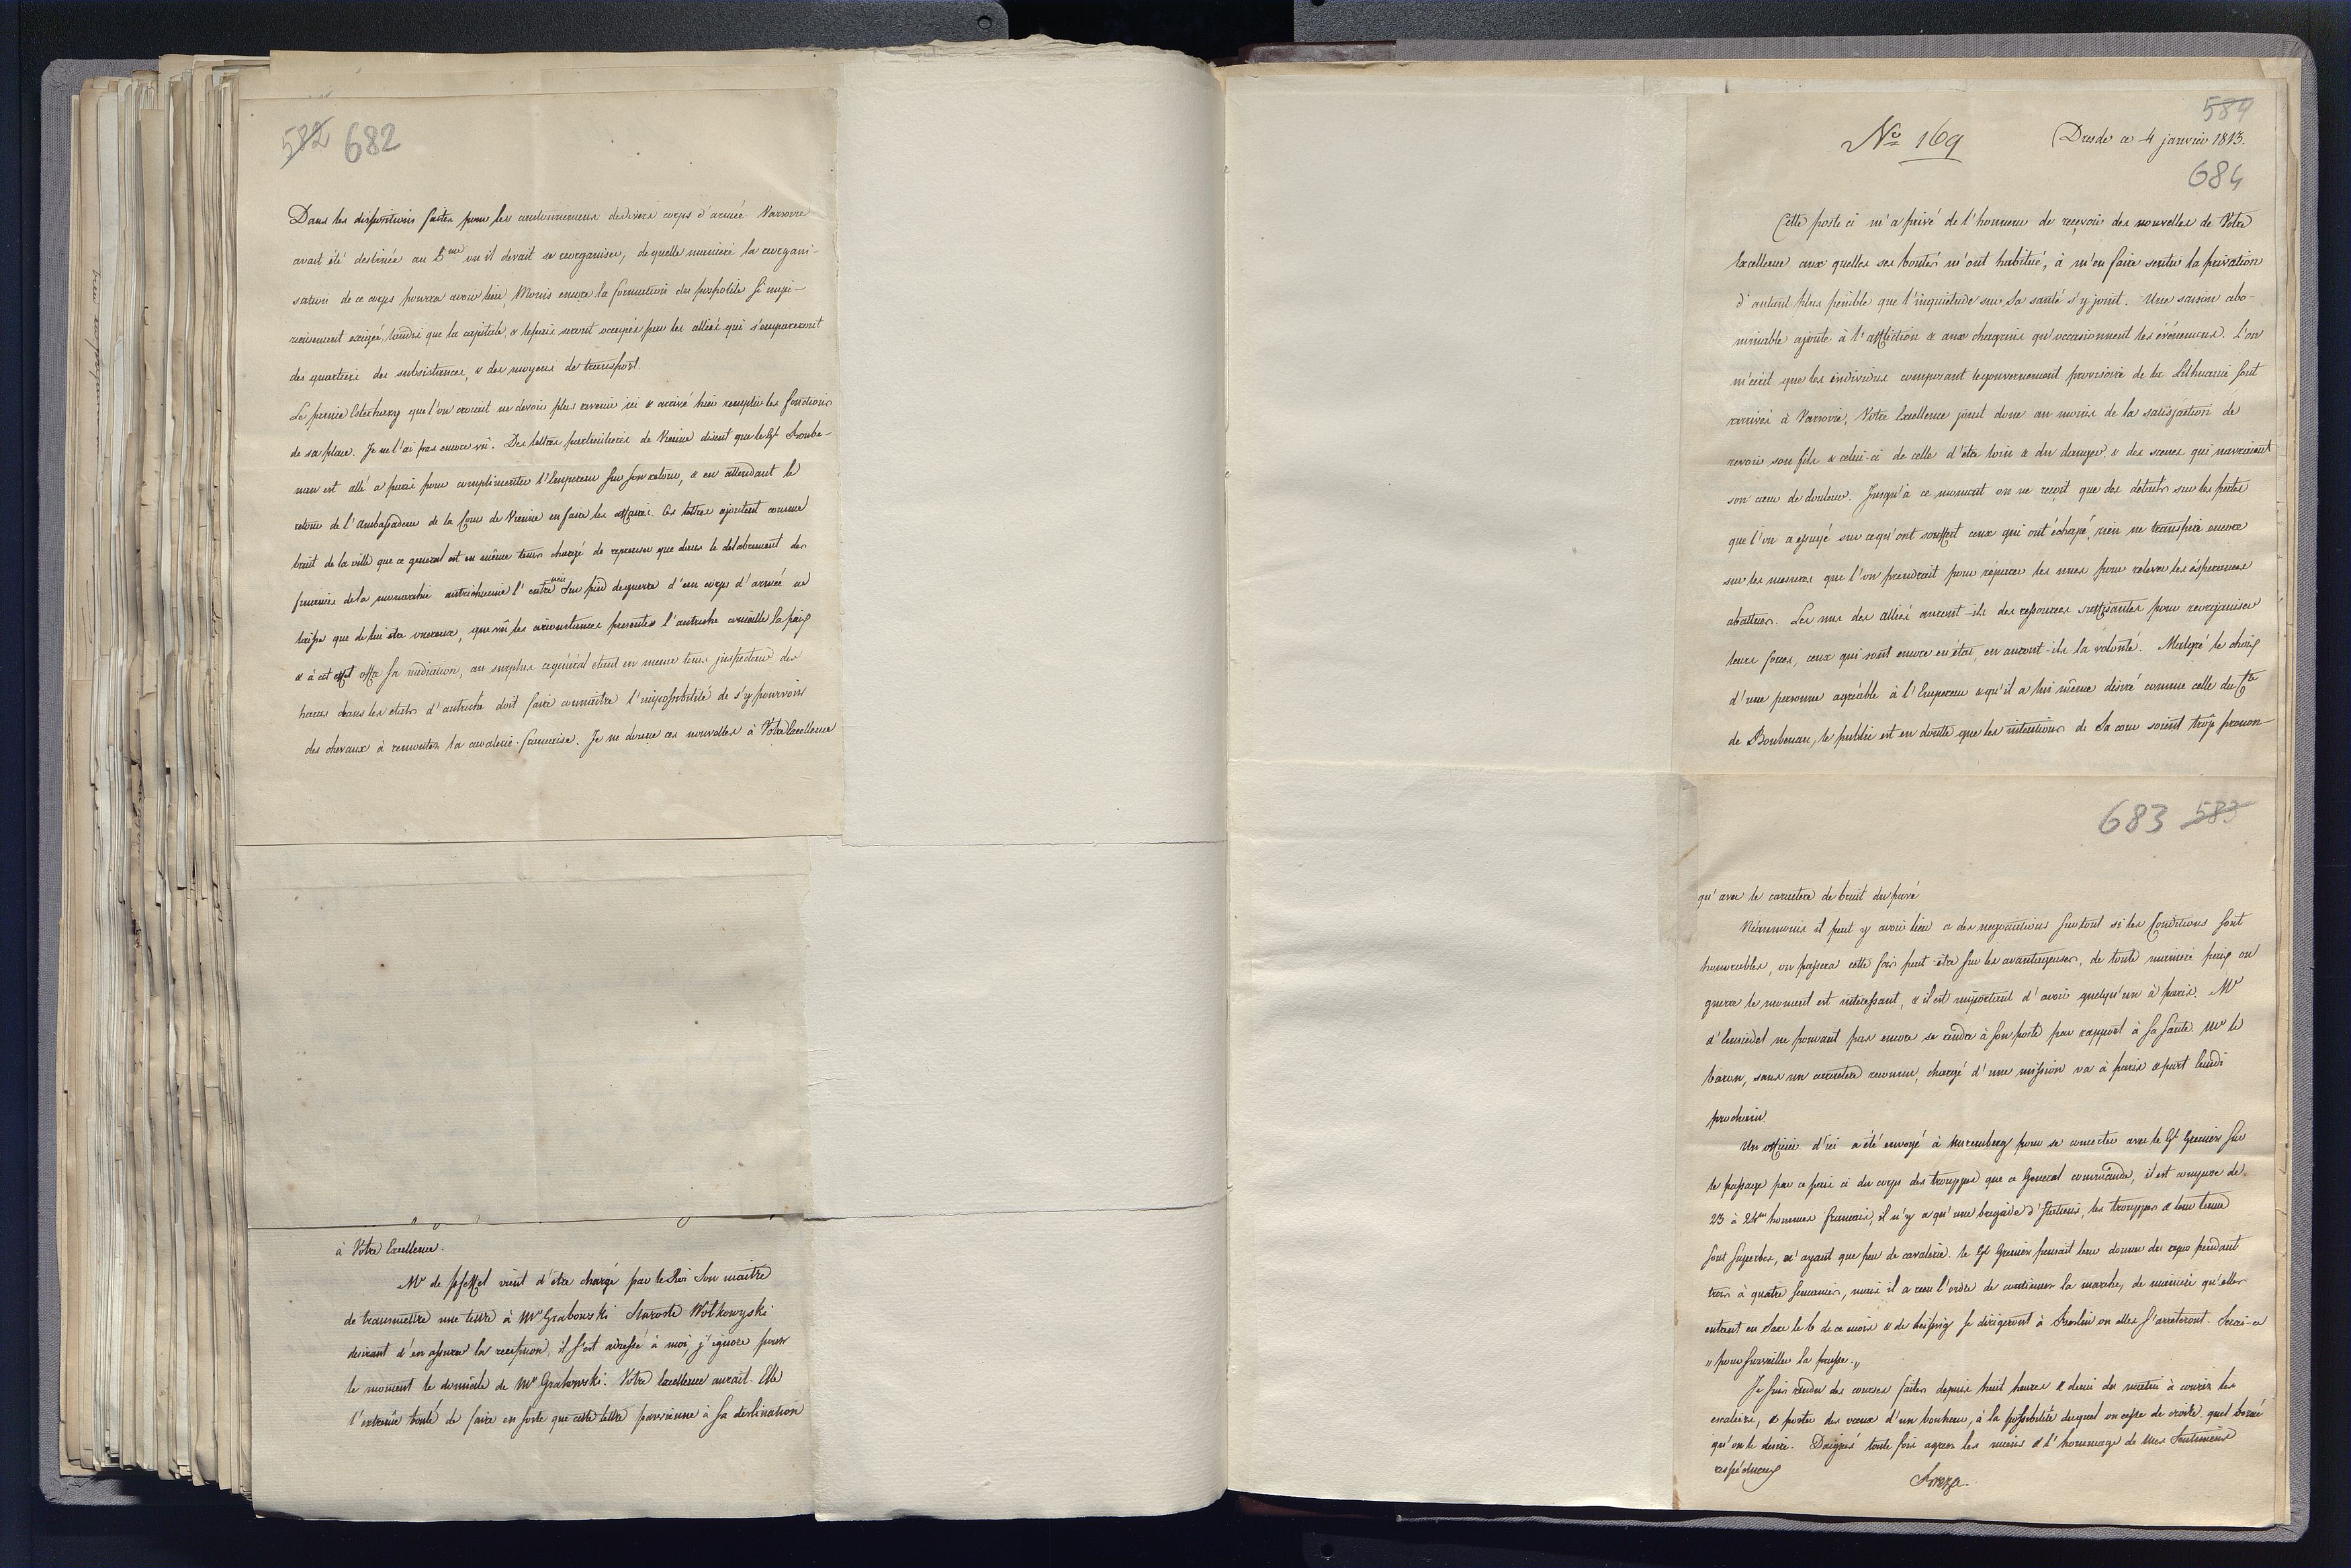 582 682
Dans les dispositions faites pour les cantonnemens des divers corps d'armée Varsovie
avait été destinée au 5me où il devait se reorganiser, de quelle maniere la reorgani-
sation de ce corps pourra avoir lieu, Moins encore la formation du pospolite si impé-
rieusement exigée, tandis que la capitale, & le païs seront occupés par les alliés qui s'empareront
des quartiers des subsistances, & des moyens de transport.
Le prince Esterhazy que l'on croioit ne devoir plus revenir ici & arrivé hier remplir les fonctions
de sa place. Je ne l'ai pas encore vû. Des lettres particulieres de Vienne disent que le Gl Boube-
nau est allé a paris pour complimenter l'Empereur sur son retour, & en attendant le
retour de l'Ambassadeur de la Cour de Vienne en faire les affaires. Ces lettres ajoutent comme
bruit de la ville que ce general est en même tems chargé de representer que dans le delabrement des
finances de la monarchie autrichienne l'entretien sur pied de guerre d'un corps d'armée ne
laisse que de lui être onereux, que vû les circonstances presentes l'autriche conseille la paix
& à cet effet offre sa médiation, au surplus ce général etant en meme tems inspecteur des
haras dans les etats d'autriche doit faire connaitre l'impossibilité de s'y pourvoir
des chevaux à remonter la cavalerie francaise. Je ne donne ces nouvelles à Votre Excellence
à Votre Excellence.
Mr de pfeffel vient d'être chargé par le Roi Son maitre
de transmettre une lettre à Mr Grabowski Staroste Wolkowyski
desirant d'en assurer la reception, il s'est adressé à moi, j'ignore pour
le moment le domicile de Mr Grabowski. Votre Excellence aurait-Elle
l'extrême bonté de faire en sorte que cette lettre parvienne à sa destination
584
No 169 Dresde ce 4 janvier 1813.
684
Cette poste ci m'a privé de l'honneur de reçevoir des nouvelles de Votre
Excellence aux quelles ses bontés m'ont habitué, à m'en faire sentir la privation
d'autant plus penible que l'inquietude sur Sa santé s'y joint. Une saison abo-
minable ajoute à l'affliction & aux chagrins qu'occasionnent les événemens. L'on
m'écrit que les individus composant le gouvernement provisoire de la Lithuanie sont
arrivés à Varsovie, Votre Excellence jouit donc au moins de la satisfaction de
revoir son fils & celui-ci de celle d'être loin & du danger, & des scenes qui navroient
son cœur de douleur. Jusqu'à ce moment on ne reçoit que des détails sur les pertes
que l'on a essuyé sur ce qu'ont souffert ceux qui ont échapé, rien ne transpire encore
sur les mesures que l'on prendrait pour réparer les unes pour relever les ésperances
abattues. Les uns des alliés auront-ils des ressources suffisantes pour reorganiser
leurs forces, ceux qui sont encore en état, en auront-ils la volonté. Malgré le choix
d'une personne agréable à l'Empereur & qu'il a lui même désiré comme celle du Cte
de Boubenau, le public est en doutte que les intentions de Sa cour soient trop pronon-
683 583
qu'avec le caractere de bruit du pavé
Néanmoins il peut y avoir lieu a des negociations sur tout si les Conditions sont
honorables, on passera cette fois peut-être sur les avantageuses, de toute maniere paix ou
guerre le moment est interessant, & il est important d'avoir quelqu'un à paris. Mr
d'Einsiedel ne pouvant pas encore se rendre à son poste par rapport à Sa Santé. Mr le
baron, sans un carractere reconnu, chargé d'une mission va à paris & part lundi
prochain.
Un officier d'ici a été envoyé à Nuremberg pour se concerter avec le Gl Grenier sur
le passage par ce païs ci du corps des trouppes que ce General commande, il est composé de
23 à 24m hommes francais, il n'y a qu'une brigade d'Italiens, les trouppes & leur tenue
sont superbes, n'ayant que peu de cavalerie. le Gl Grenier pensait leur donner du repos pendant
trois à quatre semaines, mais il a reçu l'ordre de continuer la marche, de maniere qu'elles
entrent en Saxe le 6 de ce mois & de Leipsig se dirigeront à Berlin où elles s'arréteront. Serai-ce
" pour surveiller la prusse. "
Je suis rendu des courses faites depuis huit heures & demi du matin à courir les
escaliers, & porter des vœux d'un bonheur, à la possibilité duquel on cesse de croire quel borné
qu'on le desire. Daignés toute fois agréer les miens & l'hommage de mes Sentimens
respéctueux
Breza.